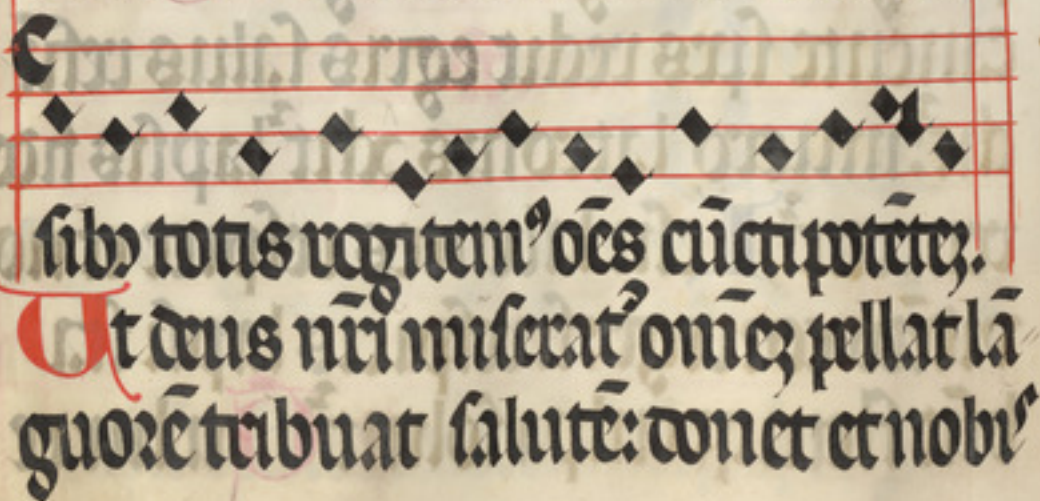 sibꝫ totis rogitemꝰ oēs cūctipotētēꝫ.
Ut deus nr̄i miserat᷑ om̄eꝫ pellat lā
guorē tribuat salutē: donet et nobis